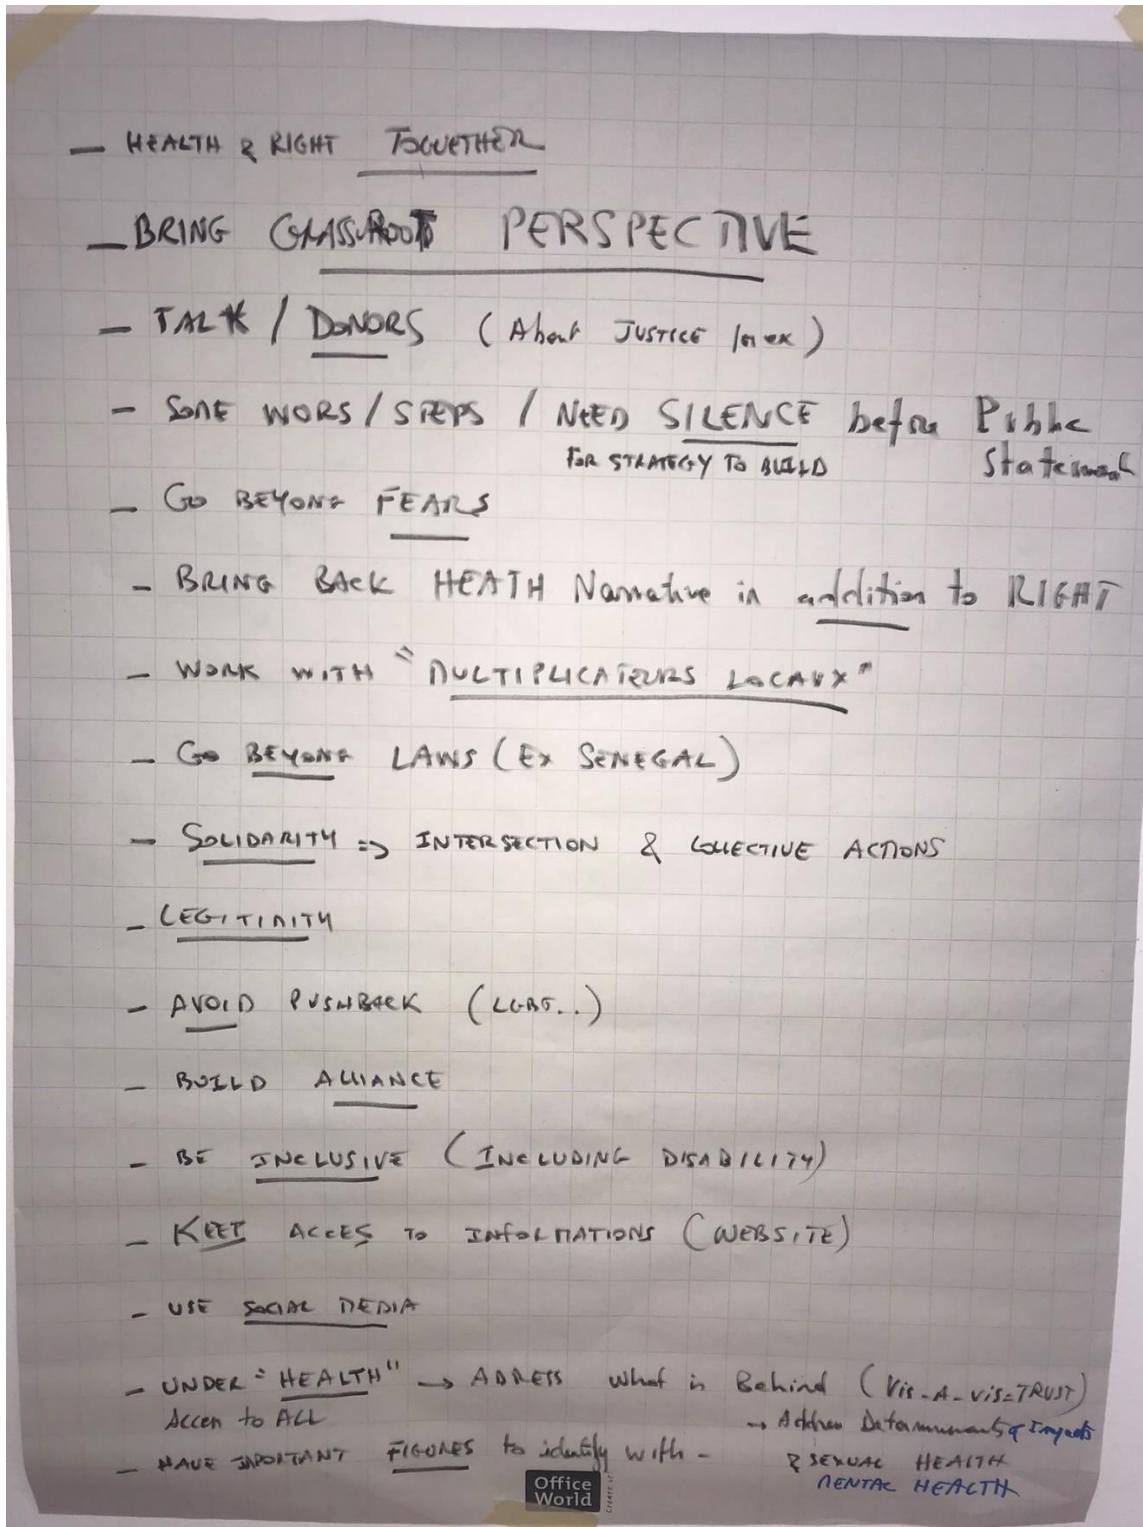 — HEALTH & RIGHT TOGUETHER
— BRING GRASSROOTS PERSPECTIVE
— TALK / DONORS (About JUSTICE for ex)
— SOME WORS / STEPS / NEED SILENCE before Public
FOR STRATEGY TO BUILD Statement
— GO BEYONG FEARS
— BRING BACK HEATH Narrative in addition to RIGHT
— WORK WITH "MULTIPLICATEURS LOCAUX"
— Go BEYONG LAWS (Ex SENEGAL)
— SOLIDARITY => INTERSECTION & COLLECTIVE ACTIONS
— LEGITIMITY
— AVOID PUSHBACK (LGBT..)
— BUILD ALLIANCE
— BE INCLUSIVE (INCLUDING DISABILITY)
— KEEP ACCES TO INFORMATIONS (WEBSITE)
— USE SOCIAL MEDIA
— UNDER "HEALTH" → ADRESS what is Behind (Vis-A-Vis=TRUST)
Acces to ALL → Address Determinants & Impacts
— HAVE IMPORTANT FIGURES to identify with - & SEXUAL HEALTH
MENTAL HEALTH
Office
World
CREATE IT